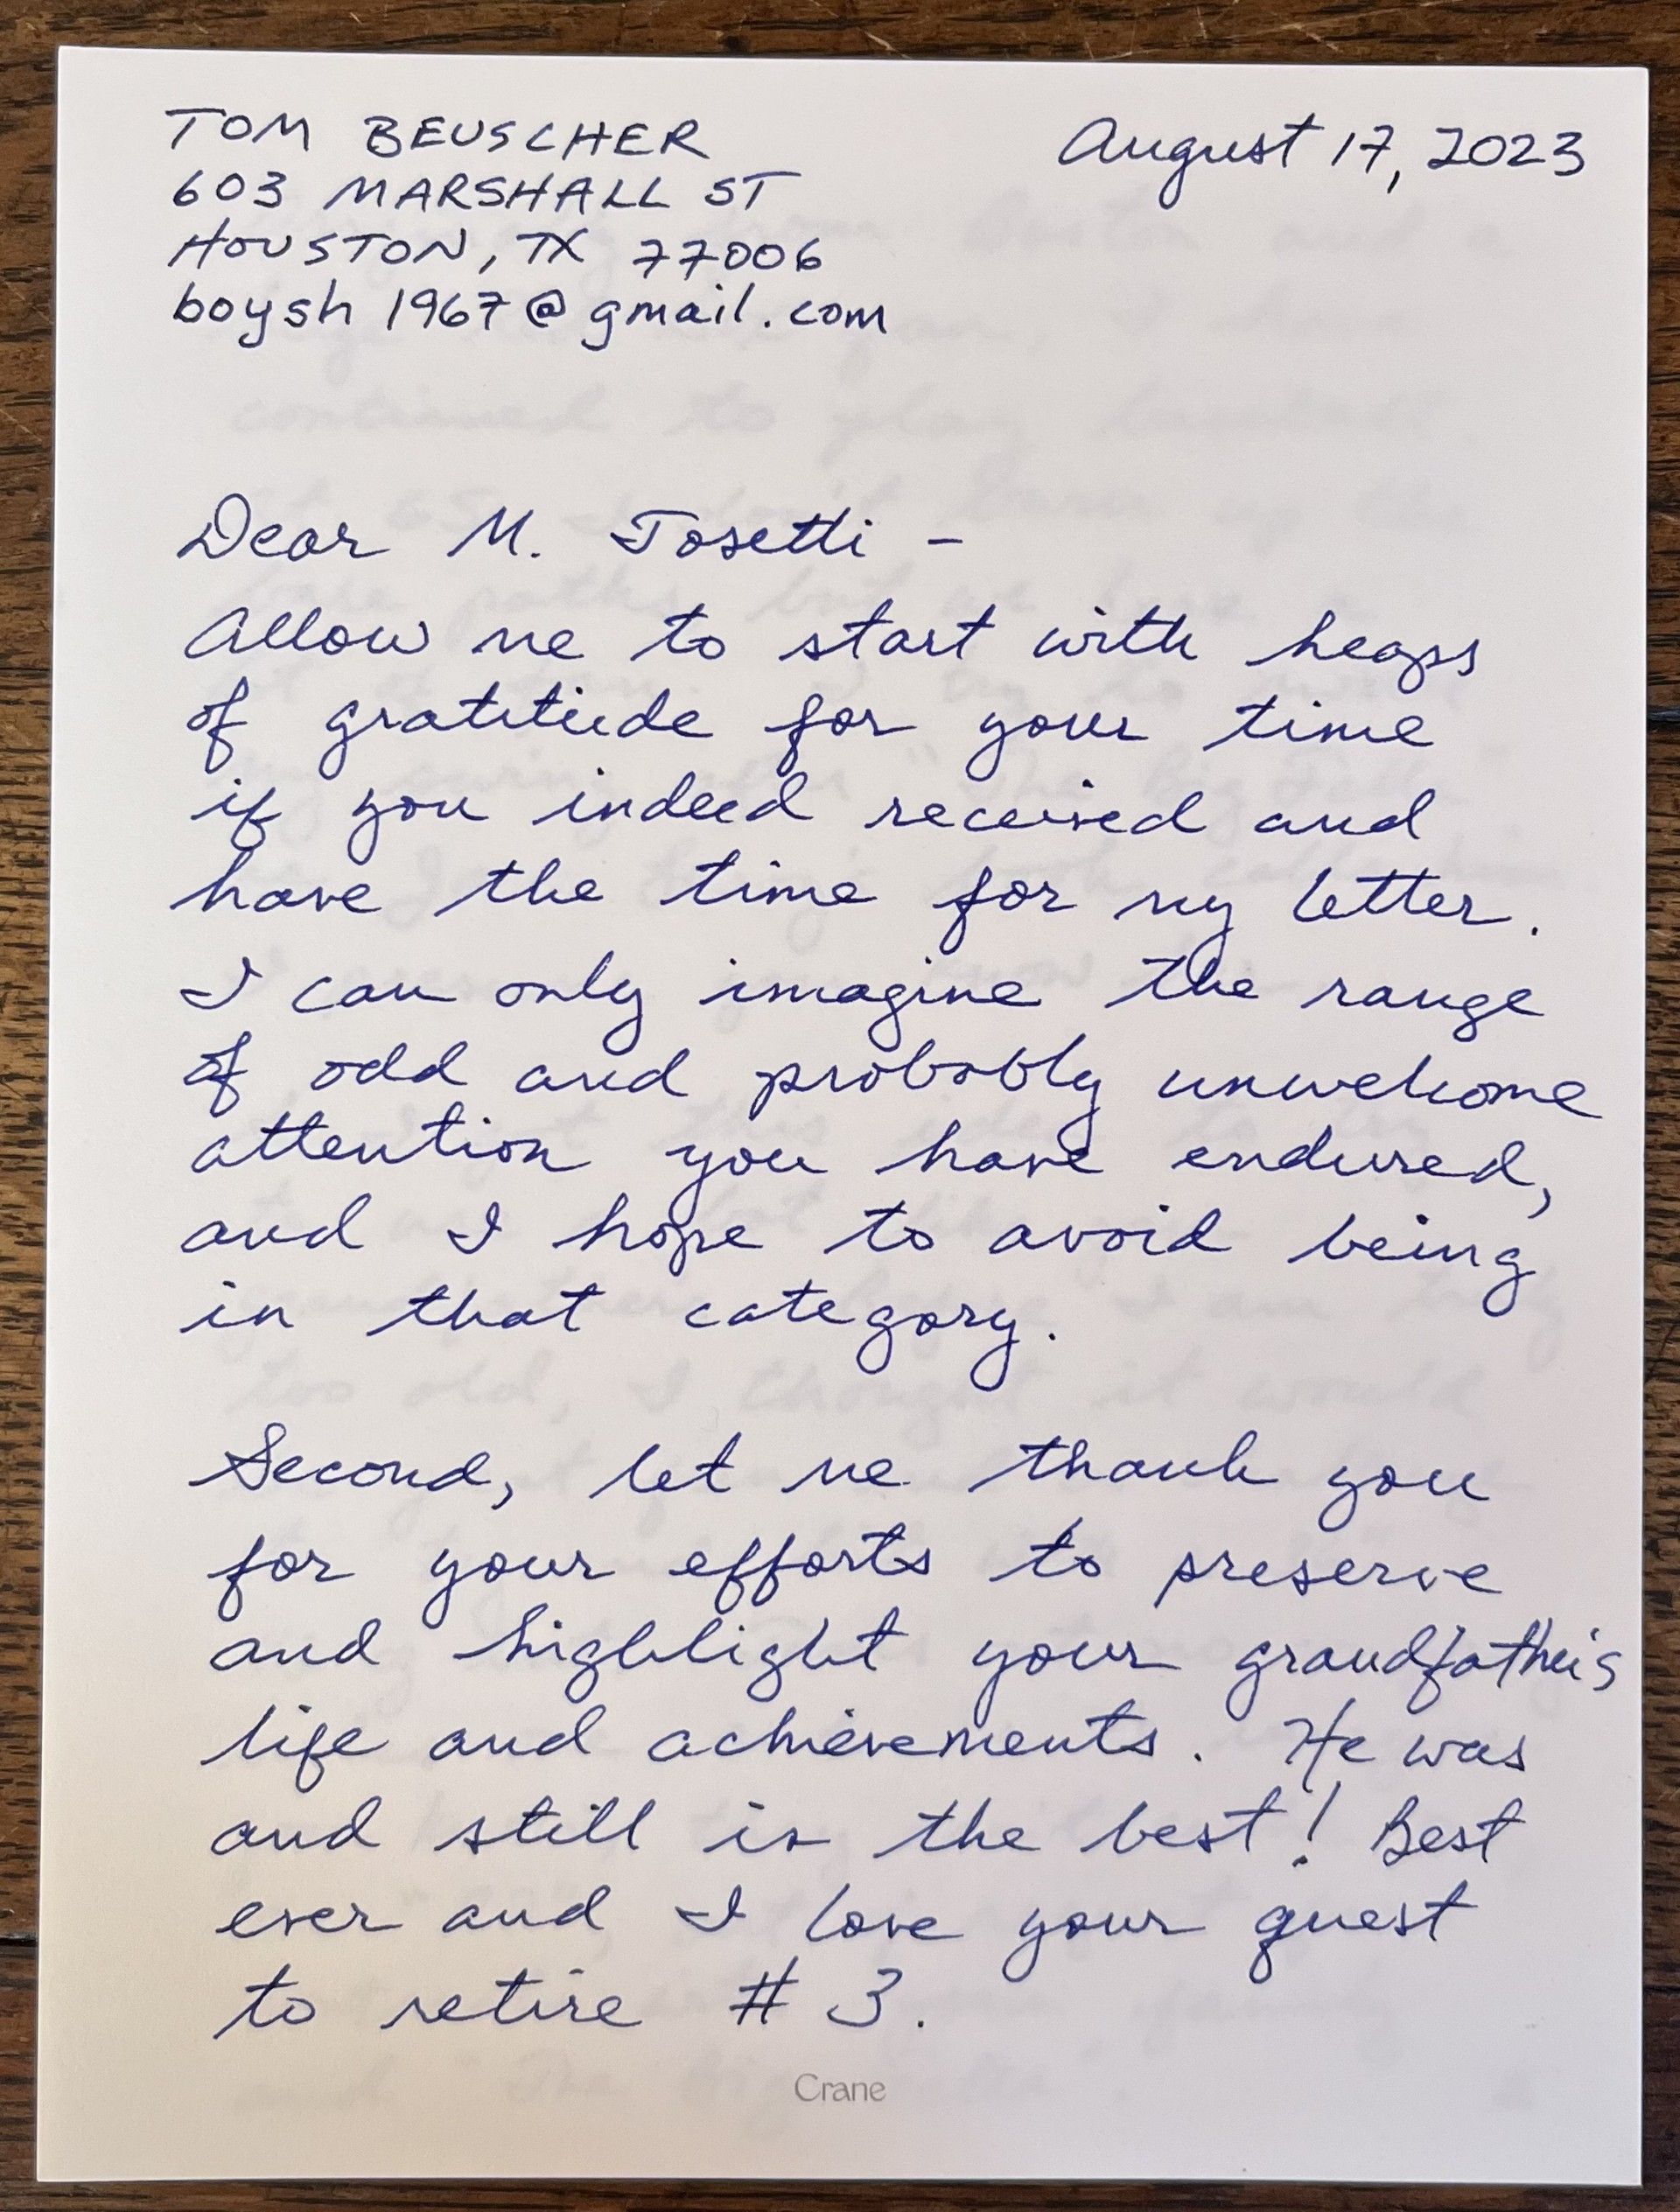 TOM BEUSCHER
603 MARSHALL ST
HOUSTON, TX 77006
boysh1967@gmail.com
August 17, 2023
Dear M. Tosetti -
Allow me to start with heaps
of gratitude for your time
if you indeed received and
have the time for my letter.
I can only imagine the range
of odd and probably unwelcome
attention you have endured,
and I hope to avoid being
in that category.
Second, let me thank you
for your efforts to preserve
and highlight your grandfather's
life and achievements. He was
and still is the best! Best
ever and I love your quest
to retire # 3.
Crane